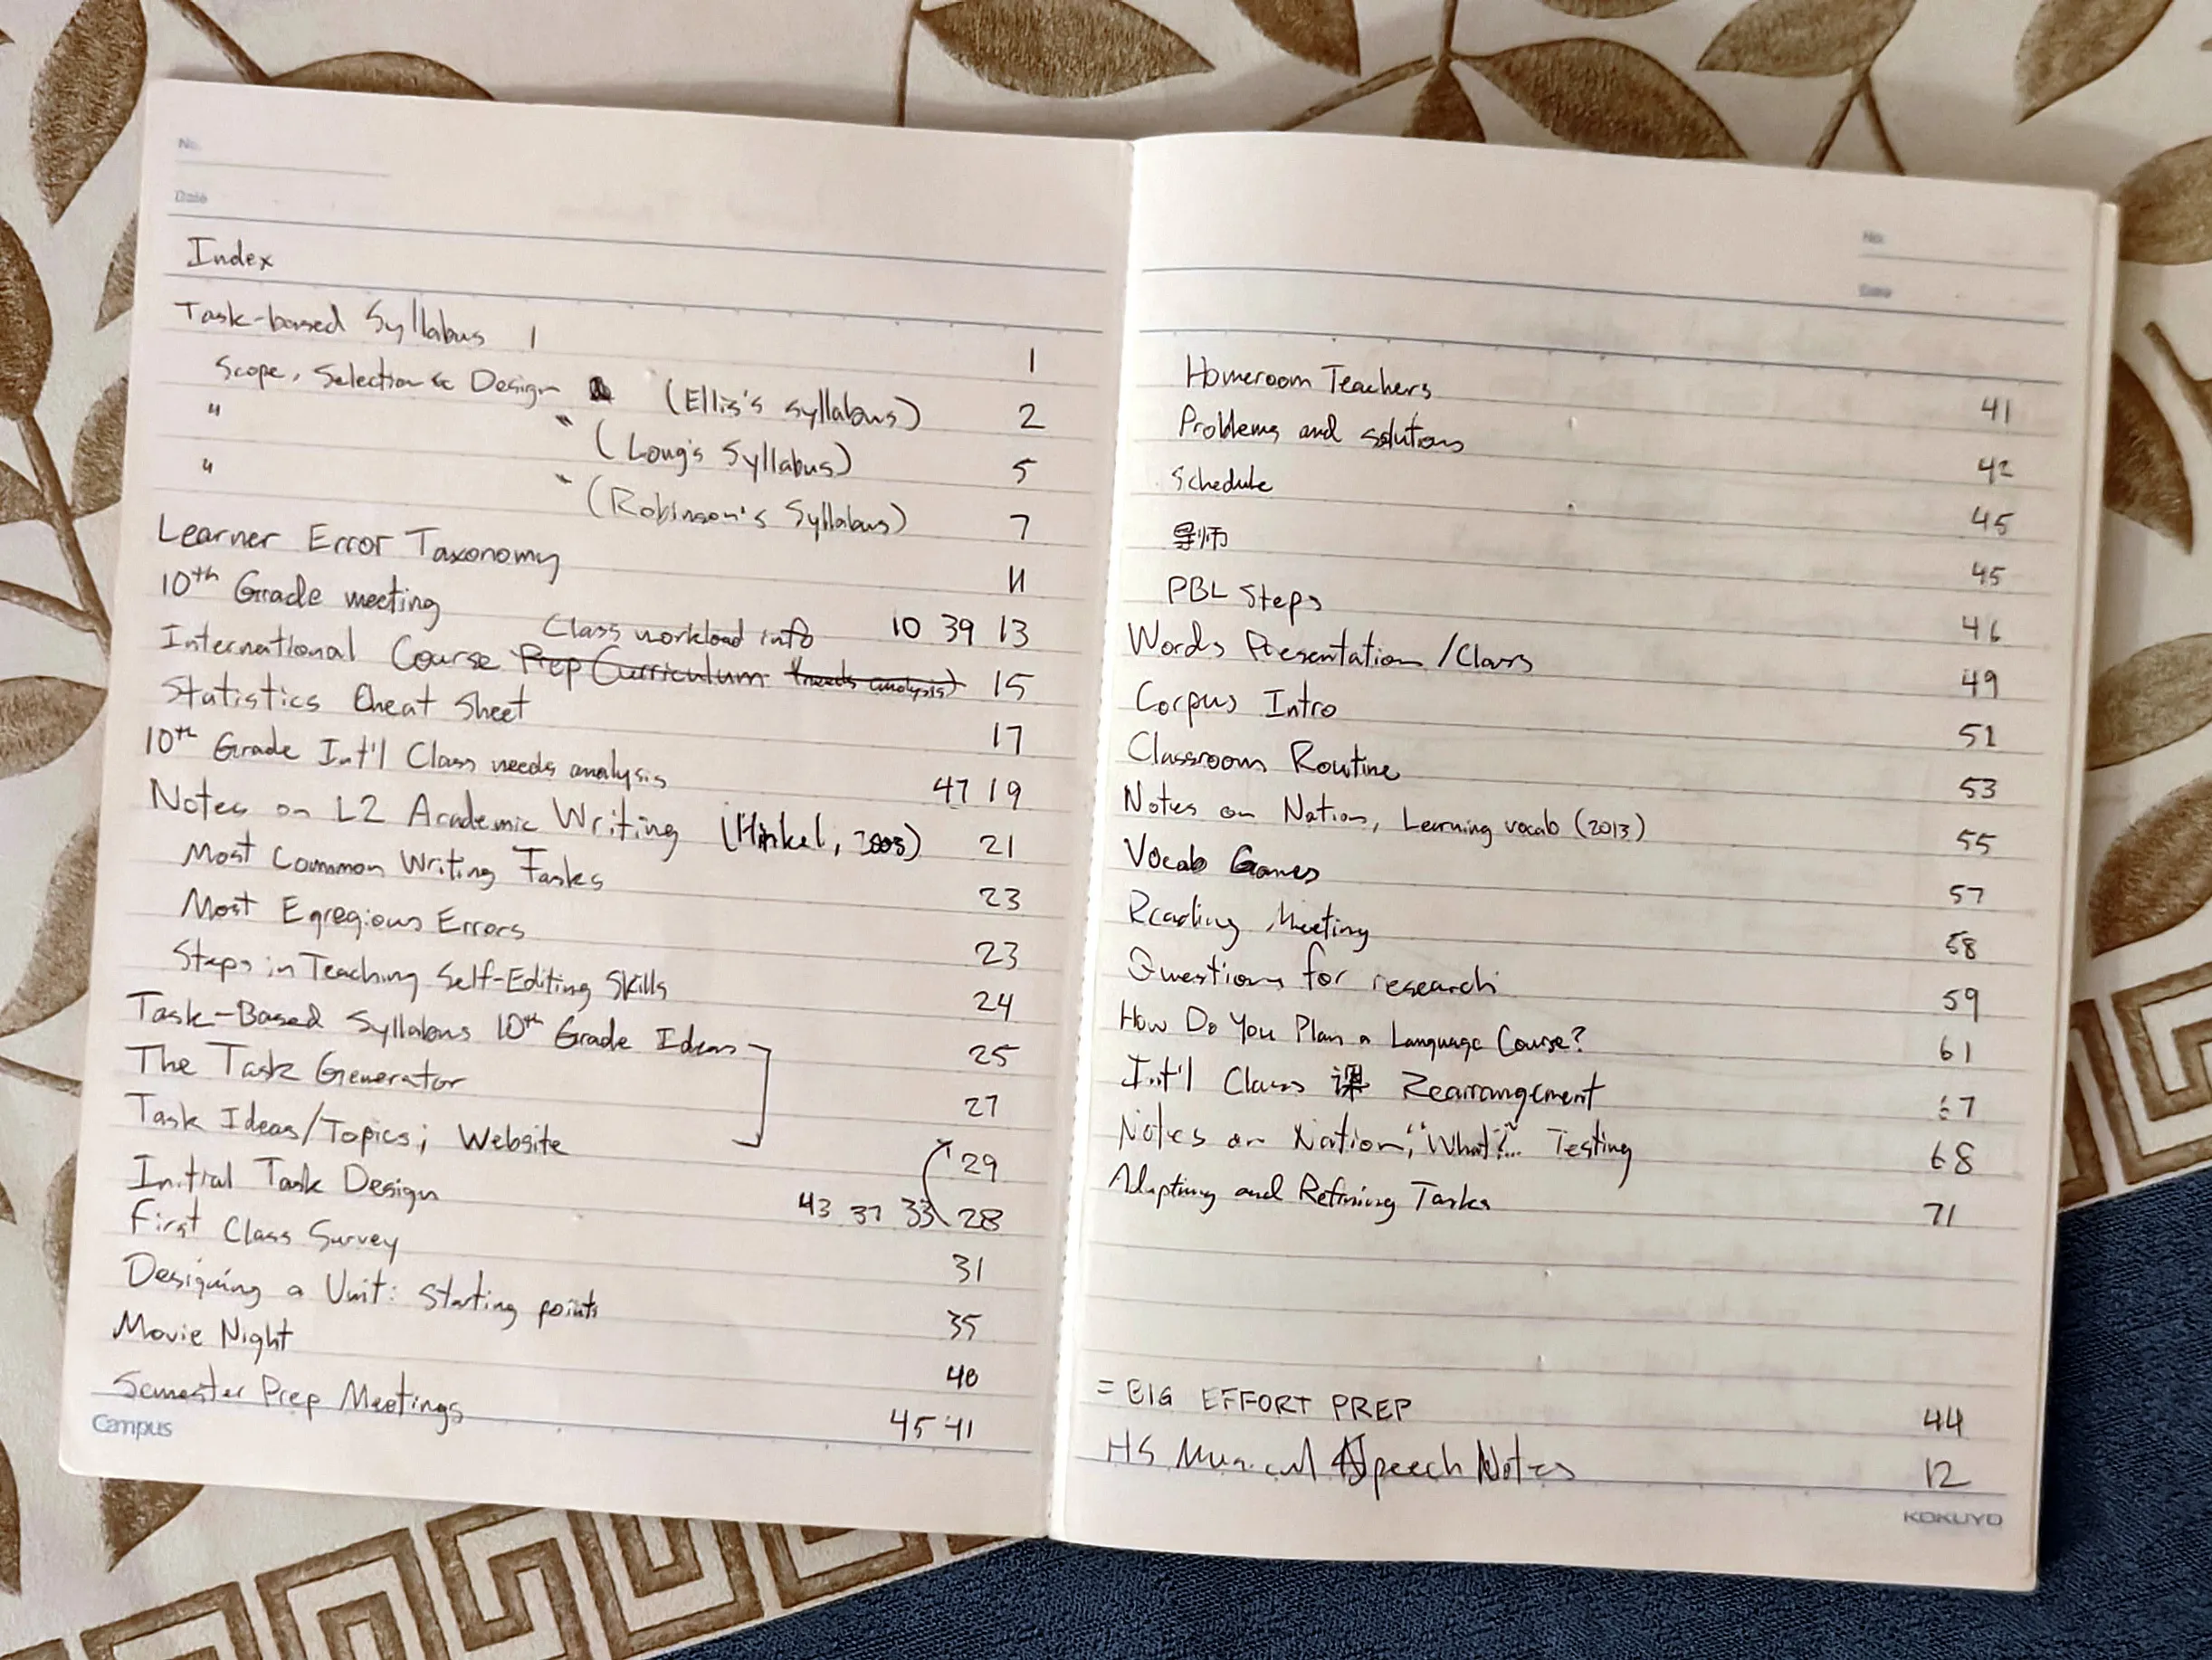 No.
Date
Index
Task-based Syllabus 1 1
Scope, Selection & Design (Ellis's syllabus) 2
" " (Long's Syllabus) 5
" " (Robinson's Syllabus) 7
Learner Error Taxonomy 11
10th Grade meeting 10 39 13
Class workload info
International Course Prep Curriculum (needs analysis) 15
Statistics Cheat Sheet 17
10th Grade Int'l Class needs analysis 47 19
Notes on L2 Academic Writing (Hinkel, ) 21
Most Common Writing Tasks 23
Most Egregious Errors 23
Steps in Teaching Self-Editing Skills 24
Task-Based Syllabus 10th Grade Ideas 25
The Task Generator 27
Task Ideas/Topics; Website 29
Initial Task Design 43 37 33 28
First Class Survey 31
Designing a Unit: Starting points 35
Movie Night 40
Semester Prep Meetings 45 41
Campus
No.
Date
Homeroom Teachers 41
Problems and solutions 42
Schedule 45
导师 45
PBL Steps 46
Words Presentation/Class 49
Corpus Intro 51
Classroom Routine 53
Notes on Nation, Learning vocab (2013) 55
Vocab Games 57
Reading Meeting 58
Questions for research 59
How Do You Plan a Language Course? 61
Int'l Class 课 Rearrangement 67
Notes on Nation, "What?"... Testing 68
Adapting and Refining Tasks 71
= BIG EFFORT PREP 44
HS Musical Speech Notes 12
KOKUYO